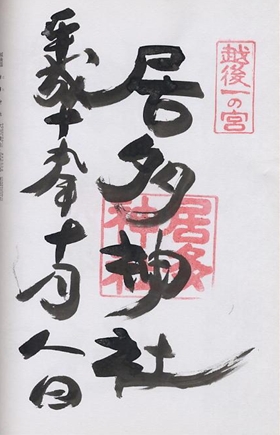 越後一の宮
居多神社
居多神社
平成十九年十月八日